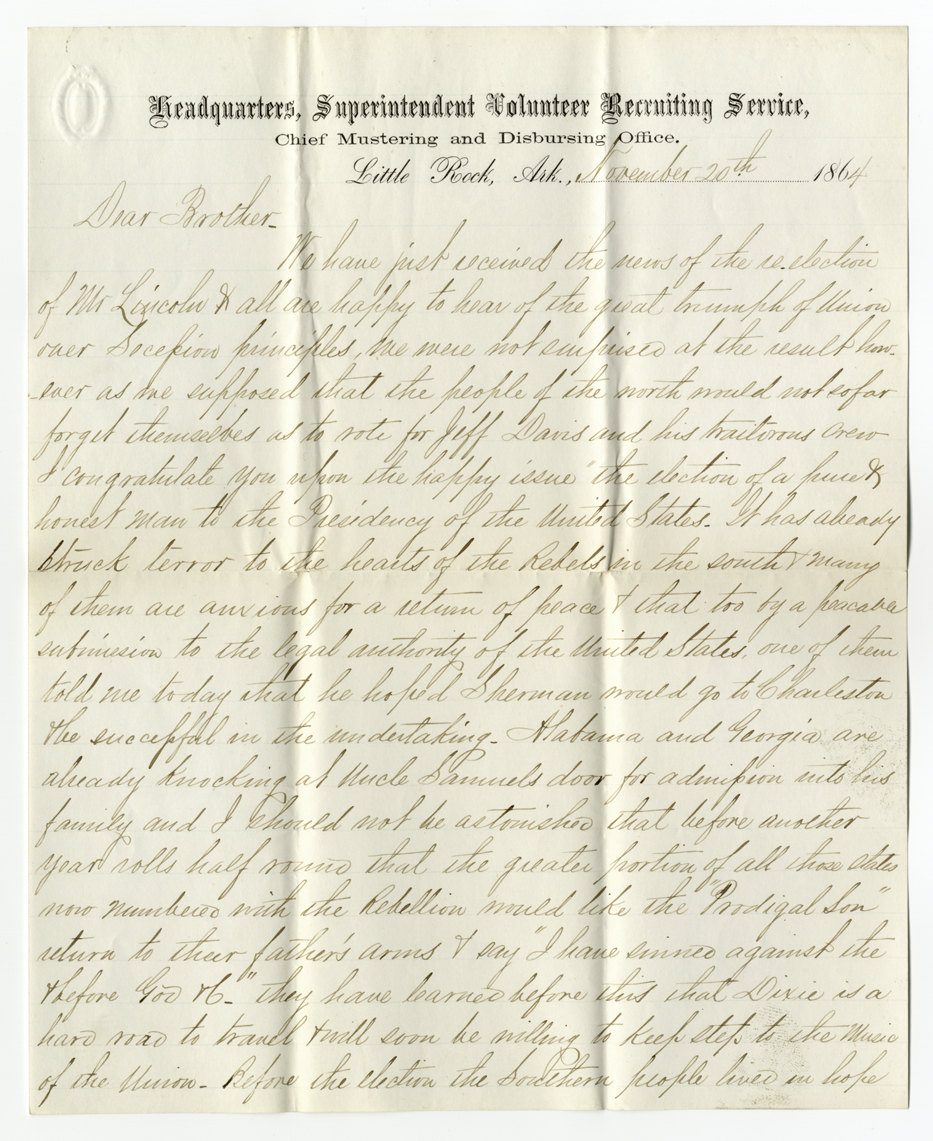 Headquarters, Superintendent Volunteer Recruiting Service,
Chief Mustering and Disbursing Office.
Little Rock, Ark., November 20th 1864
Dear Brother-
We have just received the news of the re.election
of Mr Lincoln & all are happy to hear of the great triumph of Union
over Secession principles, We were not surprised at the result how-
-ever as we supposed that the people of the north would not so far
forget themselves as to vote for Jeff Davis and his traitorous crew
I congratulate you upon the happy issue "the election of a pure &
honest man to the Presidency of the United States. It has already
struck terror to the hearts of the Rebels in the south & many
of them are anxious for a return of peace & that too by a peacable
submission to the legal authority of the United States, one of them
told me today that he hoped Sherman would go to Charleston
& be successful in the undertaking- Alabama and Georgia are
already knocking at Uncle Samuels door for admission into his
family and I should not be astonished that before another
year rolls half round that the greater portion of all those states
now numbered with the Rebellion would like the "Prodigal Son"
return to their father's arms & say "I have sinned against the
& before God &c-" they have learned before this that Dixie is a
hard road to travel & will soon be willing to keep step to the Music
of the Union- Before the election the Southern people lived in hope